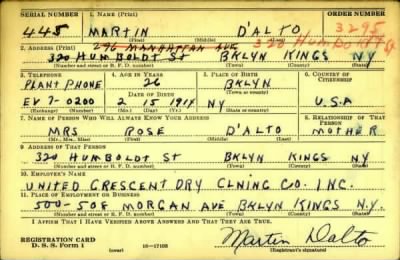 SERIAL NUMBER 1. NAME (Print) ORDER NUMBER
445 MARTIN D'ALTO 3295
(First) (Middle) (Last)
2. ADDRESS (Print) 296 MANHATTAN AVE 320 Humboldt
320 HUMBOLDT ST BKLYN KINGS NY
(Number and street or R. F. D. number) (Town) (County) (State)
3. TELEPHONE 4. AGE IN YEARS 5. PLACE OF BIRTH 6. COUNTRY OF CITIZENSHIP
PLANT PHONE 26 BKLYN
DATE OF BIRTH (Town or county)
EV 7-0200 2 15 1914 NY U.S.A
(Exchange) (Number) (Mo.) (Day) (Yr.) (State or country)
7. NAME OF PERSON WHO WILL ALWAYS KNOW YOUR ADDRESS 8. RELATIONSHIP OF THAT PERSON
MRS ROSE D'ALTO MOTHER
(Mr., Mrs., Miss) (First) (Middle) (Last)
9. ADDRESS OF THAT PERSON
320 HUMBOLDT ST BKLYN KINGS NY
(Number and street or R. F. D. number) (Town) (County) (State)
10. EMPLOYER'S NAME
UNITED CRESCENT DRY CLNING CO. INC.
11. PLACE OF EMPLOYMENT OR BUSINESS
500-508 MORGAN AVE BKLYN KINGS N.Y.
(Number and street or R. F. D. number) (Town) (County) (State)
I AFFIRM THAT I HAVE VERIFIED ABOVE ANSWERS AND THAT THEY ARE TRUE.
REGISTRATION CARD
D. S. S. Form 1 (over) 16-17105 Martin Dalto
(Registrant's signature)